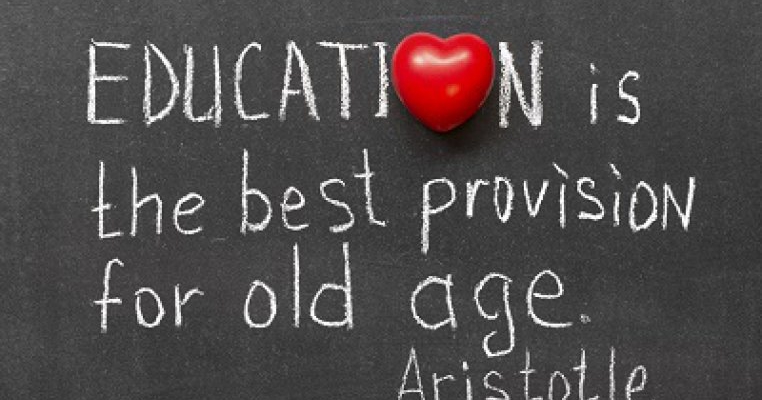 EDUCATION is
the best provision
for old age.
Aristotle